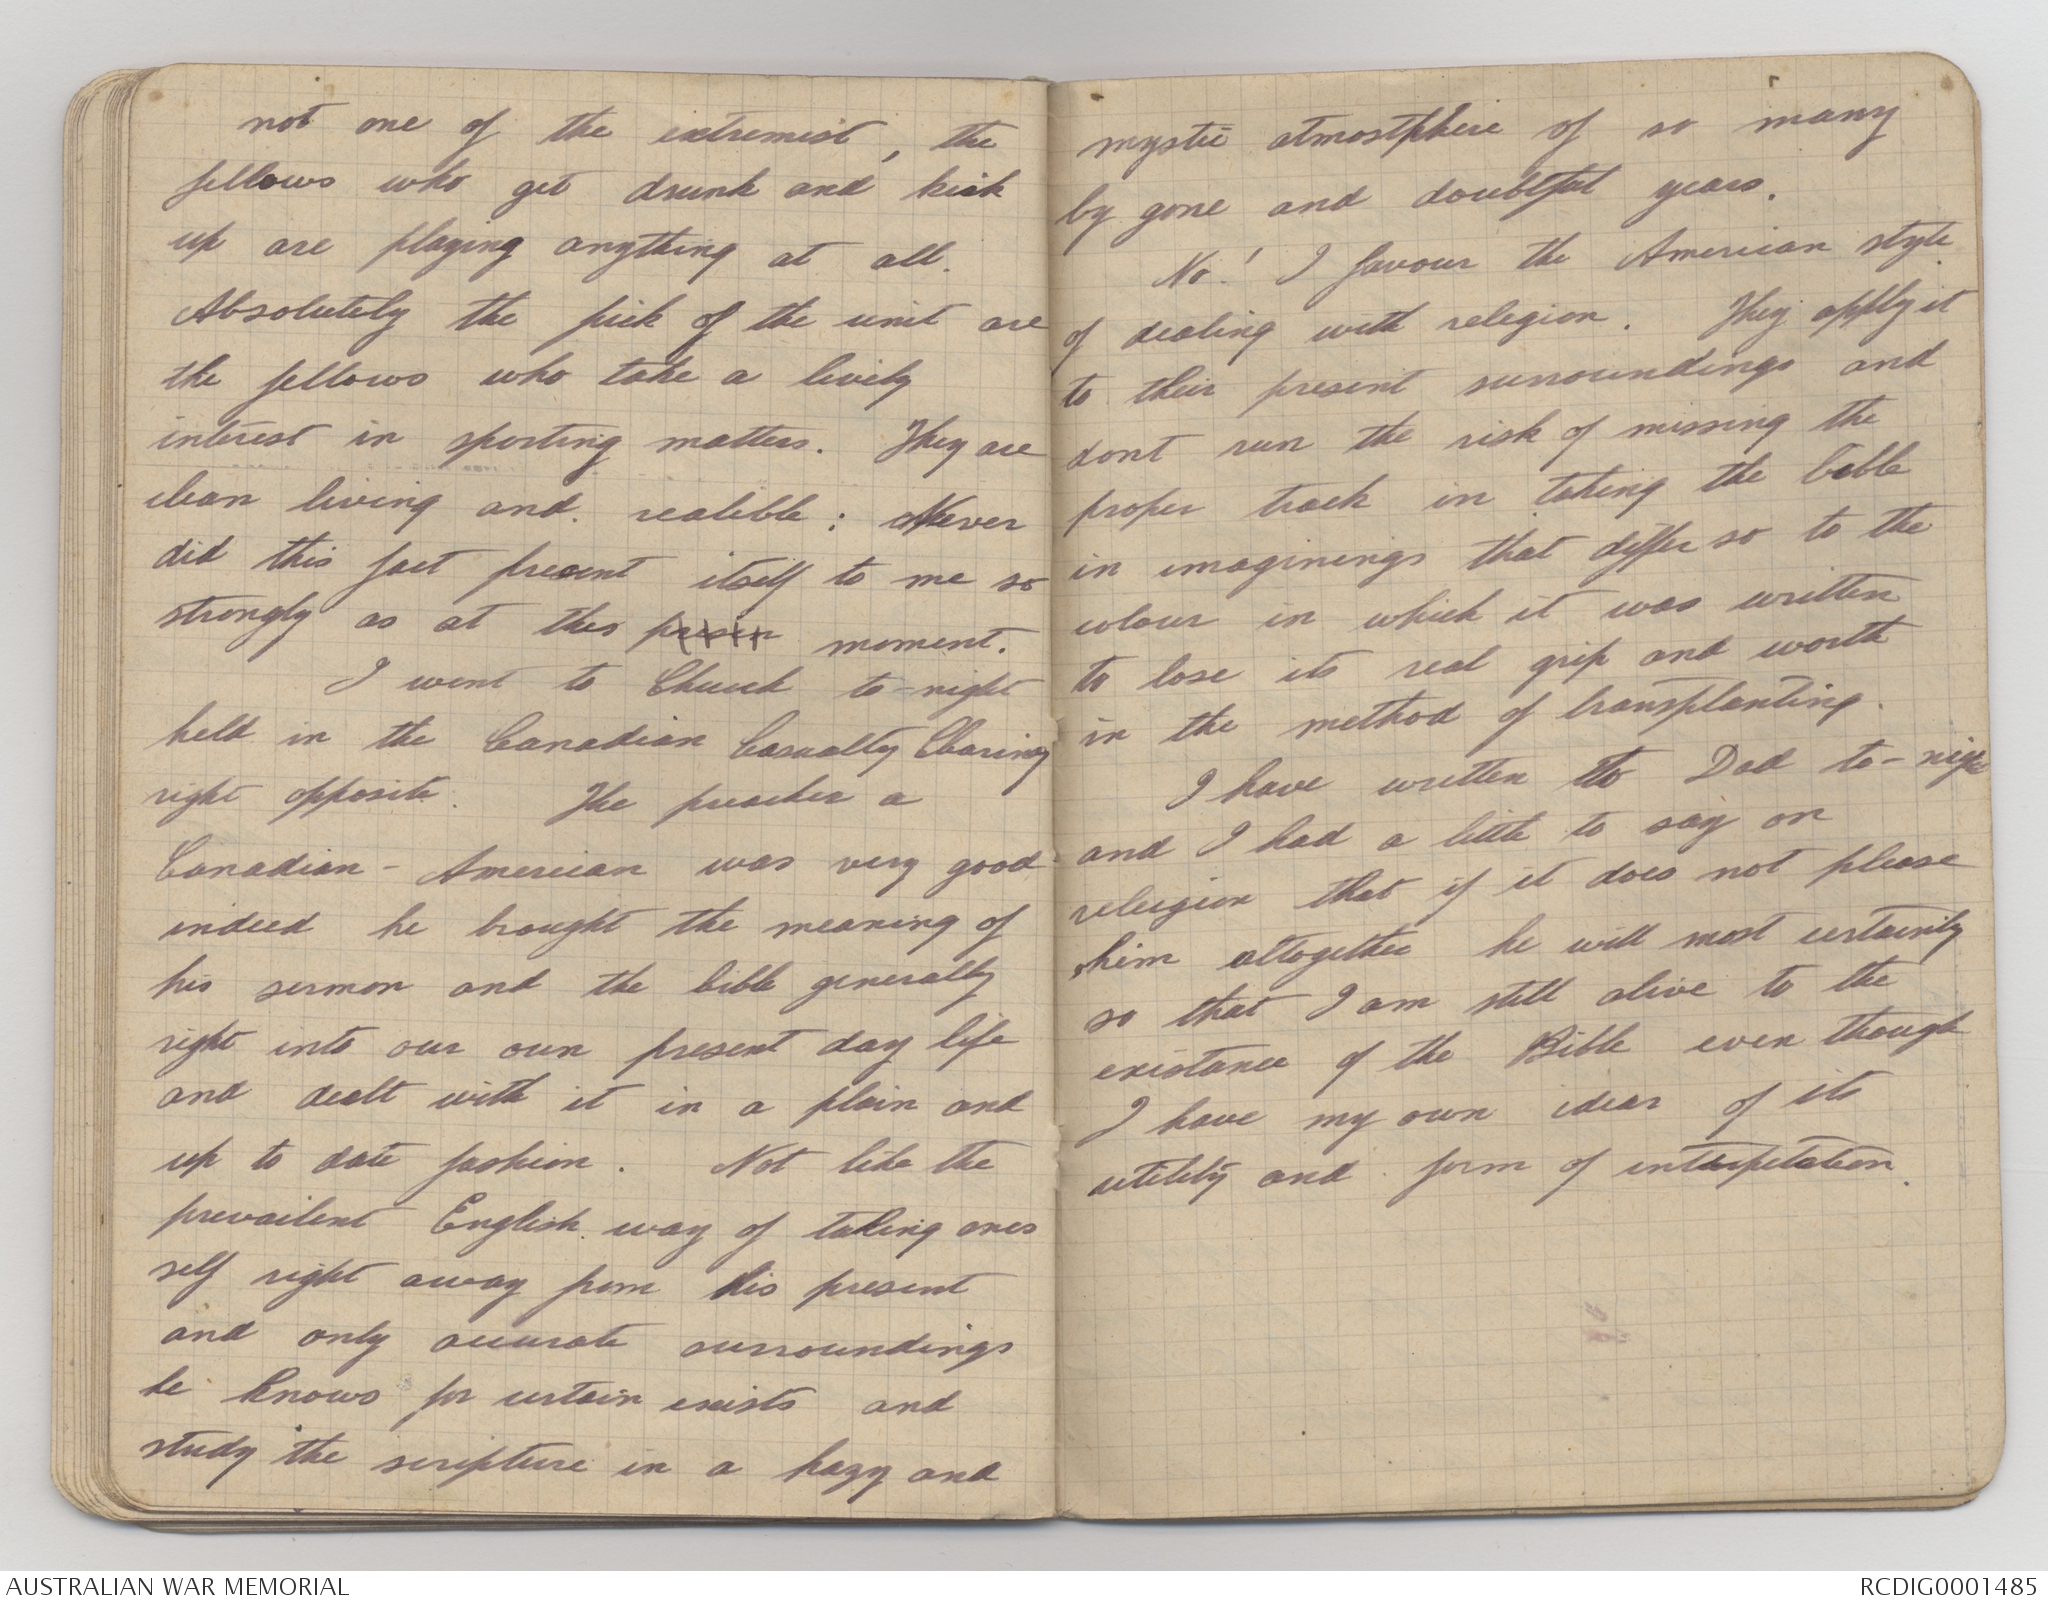 not one of the extremist, the
fellows who get drunk and kick
up are playing anything at all.
Absolutely the pick of the unit are
the fellows who take a lively
interest in sporting matters. They are
clean living and realible: Never
did this fact present itself to me so
strongly as at this presen moment.
I went to Church to-night
held in the Canadian Casualty Clearing
right opposite. The preacher a
Canadian - American was very good
indeed he brought the meaning of
his sermon and the bible generally
right into our own present day life
and dealt with it in a plain and
up to date fashion. Not like the
prevailent English way of taking ones
self right away from his present
and only accurate surroundings
he knows for certain exists and
study the scripture in a hazy and
mystic atmostphere of so many
by gone and doubtful years.
No! I favour the American style
of dealing with religion. They apply it
to their present surroundings and
dont run the risk of missing the
proper track in taking the bible
in imaginings that differ so to the
colour in which it was written
to lose its real grip and worth
in the method of transplanting.
I have written to Dad to-night
and I had a little to say on
religion that if it does not please
him altogether he will most certainly
so that I am still alive to the
existance of the Bible even though
I have my own ideas of its
utility and form of interpetation.
AUSTRALIAN WAR MEMORIAL
RCDIG0001485